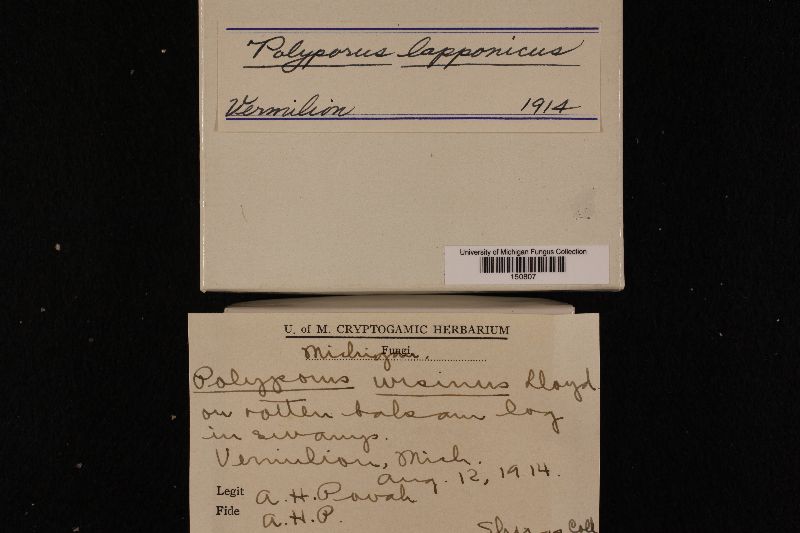 Polyporus lapponicus
Vermilion 1914
University of Michigan Fungus Collection
150807
U. of M. CRYPTOGAMIC HERBARIUM
Fungi
Michigan.
Polyporus ursinus Lloyd
on rotten balsam log
in swamp.
Vermilion, Mich.
Aug. 12, 1914.
Legit A. H. Povah
Fide A. H. P.
Coll